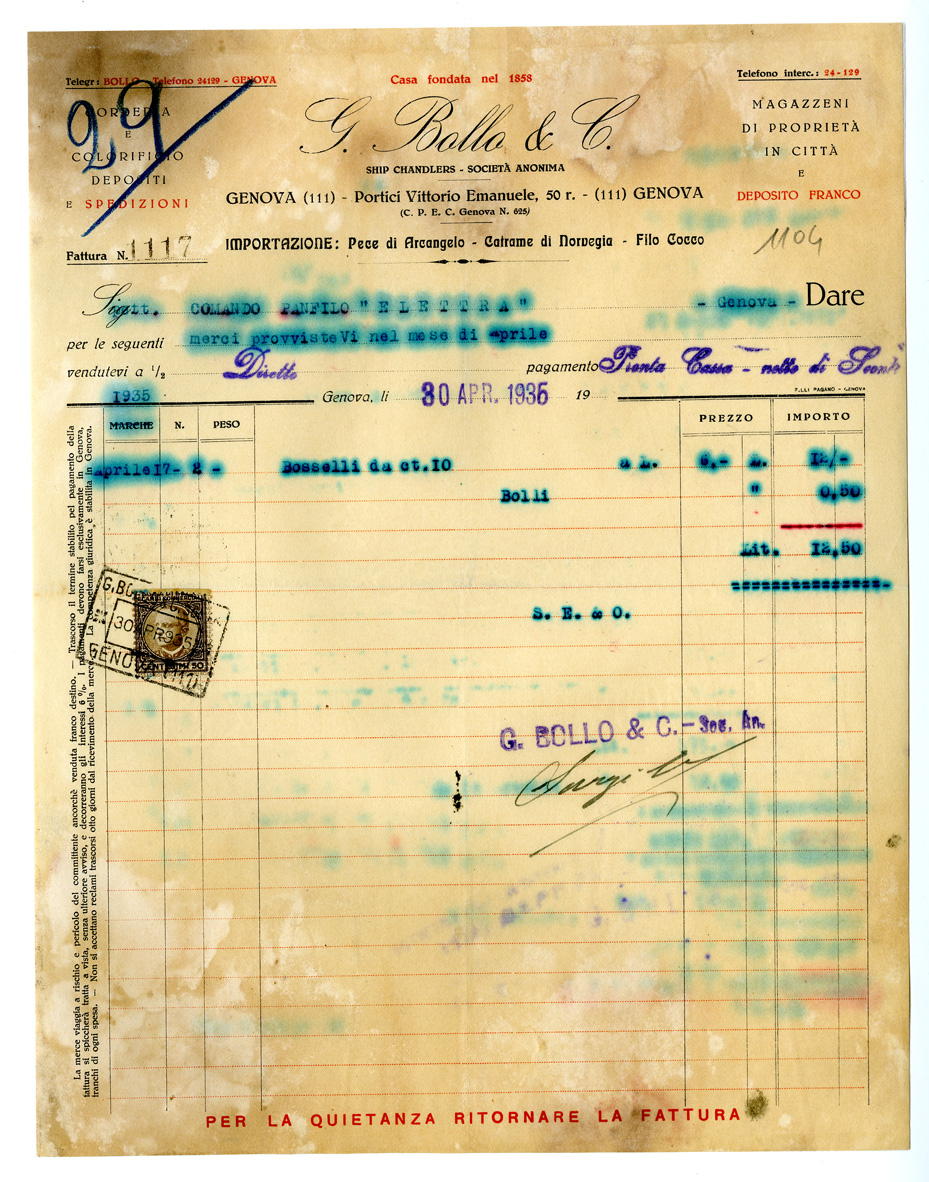 Telegr: BOLLO - Telefono 24129 - GENOVA
Casa fondata nel 1858
Telefono interc.: 24-129
29
CORDERIA
E
COLORIFICIO
DEPOSITI
E SPEDIZIONI
G. Bollo & C.
SHIP CHANDLERS - SOCIETÀ ANONIMA
GENOVA (111) - Portici Vittorio Emanuele, 50 r. - (111) GENOVA
(C. P. E. C. Genova N. 625)
MAGAZZENI
DI PROPRIETÀ
IN CITTÀ
E
DEPOSITO FRANCO
1104
Fattura N. 1117
IMPORTAZIONE: Pece di Arcangelo - Catrame di Norvegia - Filo Cocco
Sigtt. COMANDO PANFILO "ELETTRA" - Genova - Dare
per le seguenti merci provvisteVi nel mese di aprile
vendutevi a 1/2 Diretto pagamento Pronta Cassa - netto di Sconti
F.LLI PAGANO - GENOVA
1935 Genova, li 30 APR. 1935 19
MARCHE N. PESO PREZZO IMPORTO
aprile 17- 2 - Bosselli da ct.10 a L. 6,- L. 12/-
Bolli " 0,50
Lit. 12,50
===============
S. E. & O.
G. BOLLO & C.
30 APR 935
GENOVA (111)
CENTESIMI 50
G. BOLLO & C. - Soc. An.
La merce viaggia a rischio e pericolo del committente ancorchè venduta franco destino. — Trascorso il termine stabilito pel pagamento della
fattura si spiccherà tratta a vista, senza ulteriore avviso, e decorreranno gli interessi 6 %. I pagamenti devono farsi esclusivamente in Genova,
franchi di ogni spesa. — Non si accettano reclami trascorsi otto giorni dal ricevimento della merce. La competenza giuridica è stabilita in Genova.
PER LA QUIETANZA RITORNARE LA FATTURA